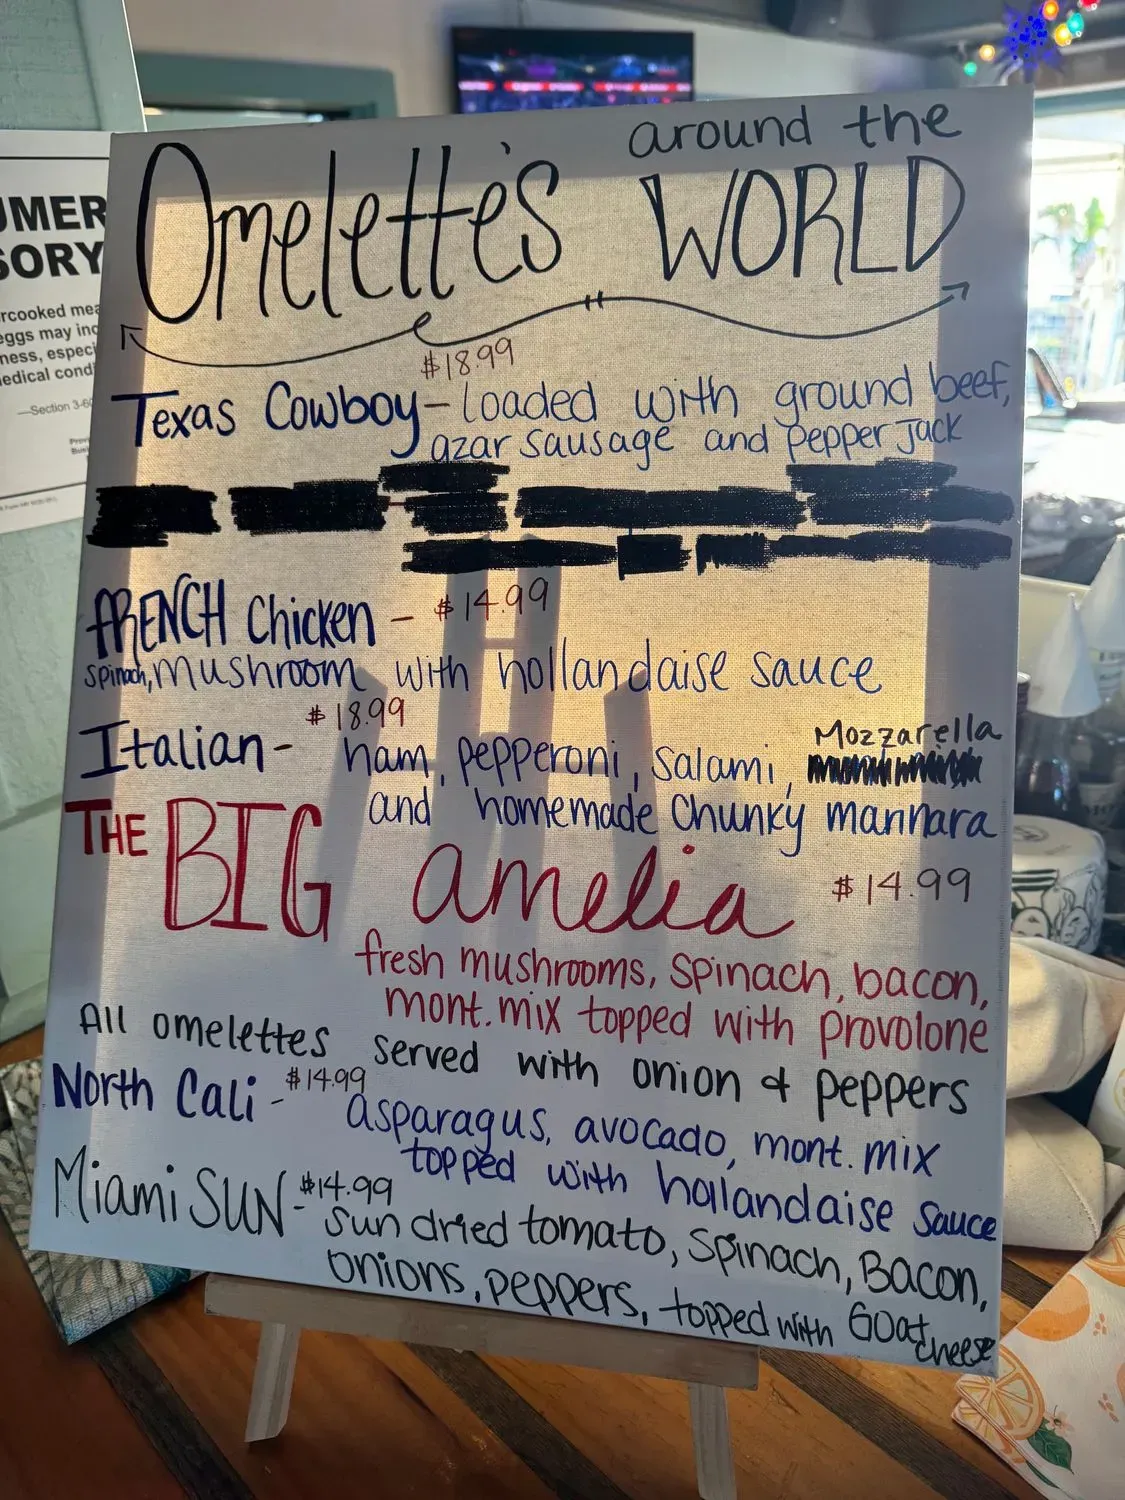 around the
Omelette's WORLD
$18.99
Texas Cowboy - loaded with ground beef,
azar sausage and pepper jack
FRENCH Chicken - $14.99
spinach, mushroom with hollandaise sauce
$18.99
Italian - ham, pepperoni, salami, Mozzarella
and homemade chunky marinara
THE BIG amelia $14.99
fresh mushrooms, spinach, bacon,
mont. mix topped with provolone
All omelettes served with onion & peppers
North Cali - $14.99 asparagus, avocado, mont. mix
topped with hollandaise sauce
Miami SUN - $14.99 sun dried tomato, spinach, Bacon,
onions, peppers, topped with Goat
cheese
UMER
SORY
rcooked mea
eggs may inc
ness, especi
edical condi
—Section 3-60